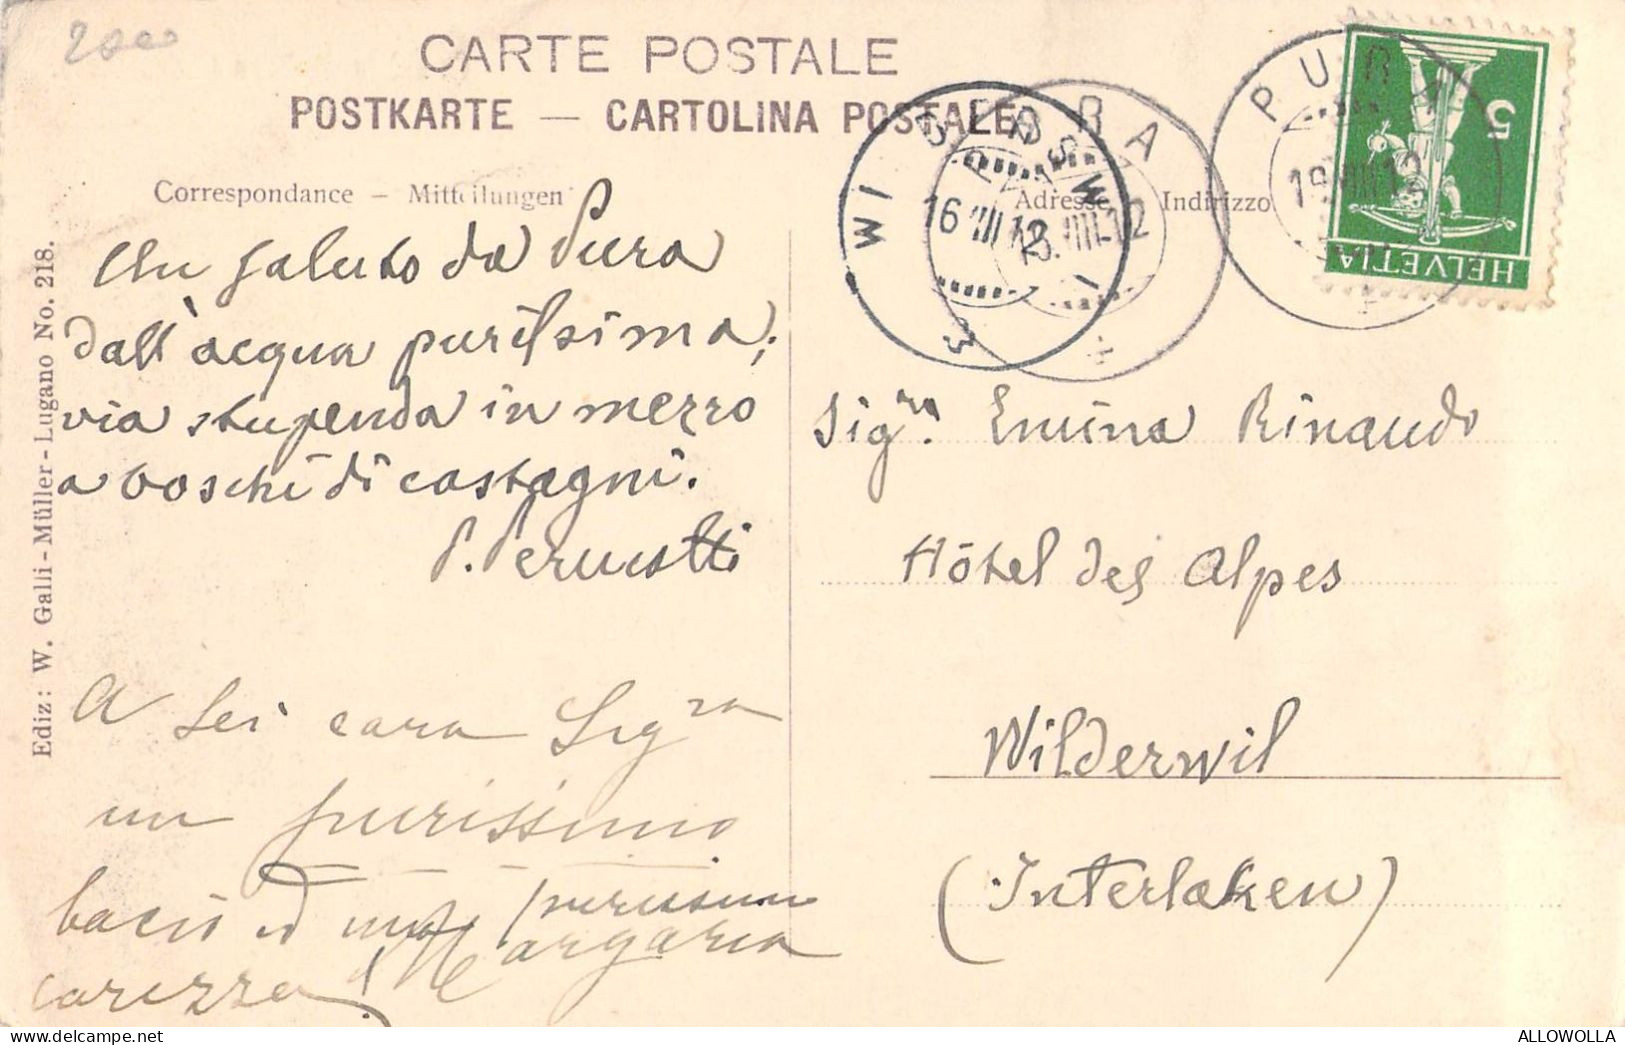 2000
CARTE POSTALE
POSTKARTE — CARTOLINA POSTALE
Correspondance – Mitteilungen
Adresse – Indirizzo
PURA
WILDERSWIL
16 VIII 12
HELVETIA
5
Un saluto da Pura
dall'acqua purissima,
via stupenda in mezzo
a boschi di castagni.
P. Perucotti
A Lei cara Sig.ra
un purissimo
bacio ed una purissima
carezza! Margaria
Sig.ra Emina Rinaudo
Hôtel des Alpes
Wilderwil
(Interlaken)
Ediz: W. Galli-Müller-Lugano No. 218.
ALLOWOLLA